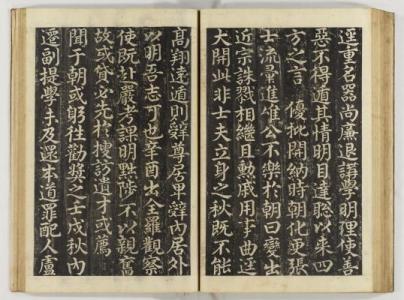 逕重名器尚廉退講學明理使善
惡不得遁其情明目達聡以来四
方之言 優批開納時朝化更張
士流彙進雖公不樂於朝曰變出
近宗誅戮相繼且勳戚用事曲逕
大開此非士夫立身之秋既不能
髙翔遠遁則辭尊居卑辭内居外
以明吾志丁也辛酉出全羅觀察
使阮赴嚴考課明黜陟不以親奮
故或貸必先於搜訪遺才或薦
聞于朝或躬往勸奬之壬戌秋内
遷副提學手及還本道罪配人盧